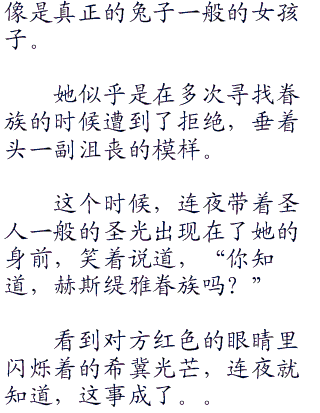 像是真正的兔子一般的女孩
子。
她似乎是在多次寻找眷
族的时候遭到了拒绝，垂着
头一副沮丧的模样。
这个时候，连夜带着圣
人一般的圣光出现在了她的
身前，笑着说道，“你知
道，赫斯缇雅眷族吗？”
看到对方红色的眼睛里
闪烁着的希冀光芒，连夜就
知道，这事成了。。